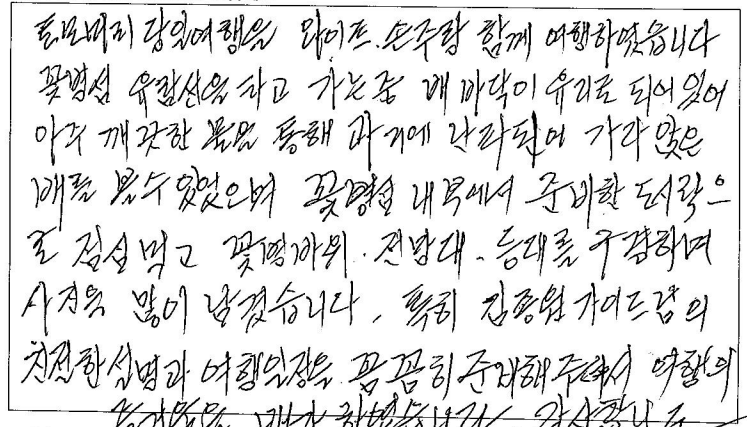 토모버리 당일여행을 와이프. 손주랑 함께 여행하였습니다
꽃병섬 유람선을 타고 가는중 배 바닥이 유리로 되어 있어
아주 깨끗한 물을 통해 과거에 난파되어 가라 앉은
배를 볼수 있었으며 꽃병섬 내부에서 준비한 도시락으
로 점심 먹고 꽃병바위. 전망대. 등대를 구경하며
사진을 많이 남겼습니다. 특히 김종원 가이드님의
친절한 설명과 여행일정을 꼼꼼히 준비해 주셔서 여행의
감사합니다